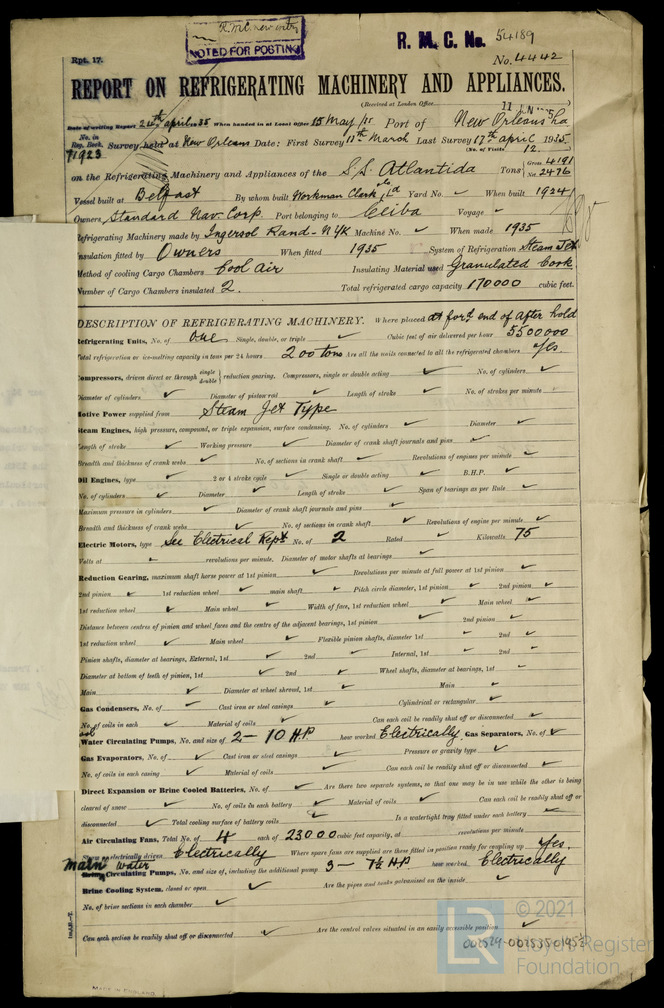 R.M.C. new entry
NOTED FOR POSTING
R. M. C. No. 54189
Rpt. 17.
No. 4442
REPORT ON REFRIGERATING MACHINERY AND APPLIANCES.
(Received at London Office
Date of writing Report 24th april 35 When handed in at Local Office 15 May 1935 Port of New Orleans La
No. in Reg. Book. Survey held at New Orleans Date: First Survey 11th March Last Survey 17th april 1935
71923 (No. of Visits 12.
on the Refrigerating Machinery and Appliances of the S.S. Atlantida Tons Gross 4191 Net 2476
Vessel built at Belfast By whom built Workman Clark Co Ld Yard No. ✓ When built 1924
Owners Standard Nav. Corp. Port belonging to Ceiba Voyage ✓
Refrigerating Machinery made by Ingersol Rand - N.Yk Machine No. ✓ When made 1935
Insulation fitted by Owners When fitted 1935 System of Refrigeration Steam Jet
Method of cooling Cargo Chambers Cool air Insulating Material used Granulated Cork
Number of Cargo Chambers insulated 2. Total refrigerated cargo capacity 170000 cubic feet.
DESCRIPTION OF REFRIGERATING MACHINERY. Where placed at for'd end of after hold
Refrigerating Units, No. of One Single, double, or triple ✓ Cubic feet of air delivered per hour 5500000
Total refrigeration or ice-melting capacity in tons per 24 hours 200 tons Are all the units connected to all the refrigerated chambers Yes.
Compressors, driven direct or through single double reduction gearing. Compressors, single or double acting ✓ No. of cylinders ✓
Diameter of cylinders ✓ Diameter of piston rod ✓ Length of stroke ✓ No. of strokes per minute
Motive Power supplied from Steam Jet Type
Steam Engines, high pressure, compound, or triple expansion, surface condensing. No. of cylinders ✓ Diameter ✓
Length of stroke ✓ Working pressure ✓ Diameter of crank shaft journals and pins ✓
Breadth and thickness of crank webs ✓ No. of sections in crank shaft ✓ Revolutions of engines per minute ✓
Oil Engines, type ✓ 2 or 4 stroke cycle ✓ Single or double acting ✓ B.H.P. ✓
No. of cylinders ✓ Diameter ✓ Length of stroke ✓ Span of bearings as per Rule ✓
Maximum pressure in cylinders ✓ Diameter of crank shaft journals and pins ✓
Breadth and thickness of crank webs ✓ No. of sections in crank shaft ✓ Revolutions of engine per minute ✓
Electric Motors, type See Electrical Rept No. of 2 Rated ✓ Kilowatts 75
Volts at ✓ revolutions per minute. Diameter of motor shafts at bearings ✓
Reduction Gearing, maximum shaft horse power at 1st pinion ✓ Revolutions per minute at full power at 1st pinion ✓
2nd pinion ✓ 1st reduction wheel ✓ main shaft ✓ Pitch circle diameter, 1st pinion ✓ 2nd pinion ✓
1st reduction wheel ✓ Main wheel ✓ Width of face, 1st reduction wheel ✓ Main wheel ✓
Distance between centres of pinion and wheel faces and the centre of the adjacent bearings, 1st pinion ✓ 2nd pinion ✓
1st reduction wheel ✓ Main wheel ✓ Flexible pinion shafts, diameter 1st ✓ 2nd ✓
Pinion shafts, diameter at bearings, External, 1st ✓ 2nd ✓ Internal, 1st ✓ 2nd ✓
Diameter at bottom of teeth of pinion, 1st ✓ 2nd ✓ Wheel shafts, diameter at bearings, 1st ✓
Main ✓ Diameter at wheel shroud, 1st ✓ Main ✓
Gas Condensers, No. of ✓ Cast iron or steel casings ✓ Cylindrical or rectangular ✓
No. of coils in each ✓ Material of coils ✓ Can each coil be readily shut off or disconnected ✓
Water Circulating Pumps, No. and size of 2 - 10 H.P how worked Electrically Gas Separators, No. of ✓
Gas Evaporators, No. of ✓ Cast iron or steel casings ✓ Pressure or gravity type ✓
No. of coils in each casing ✓ Material of coils ✓ Can each coil be readily shut off or disconnected ✓
Direct Expansion or Brine Cooled Batteries, No. of ✓ Are there two separate systems, so that one may be in use while the other is being
cleared of snow ✓ No. of coils in each battery ✓ Material of coils ✓ Can each coil be readily shut off or
disconnected ✓ Total cooling surface of battery coils ✓ Is a watertight tray fitted under each battery ✓
Air Circulating Fans, Total No. of 4 each of 23000 cubic feet capacity, at revolutions per minute
Steam or electrically driven Electrically Where spare fans are supplied are these fitted in position ready for coupling up Yes.
Main Water
Brine Circulating Pumps, No. and size of, including the additional pump 3 - 7½ H.P. how worked Electrically
Brine Cooling System, closed or open ✓ Are the pipes and tanks galvanised on the inside ✓
No. of brine sections in each chamber ✓
Can each section be readily shut off or disconnected ✓ Are the control valves situated in easily accessible position ✓
MADE IN ENGLAND
© 2021
LR
Lloyd's Register
Foundation